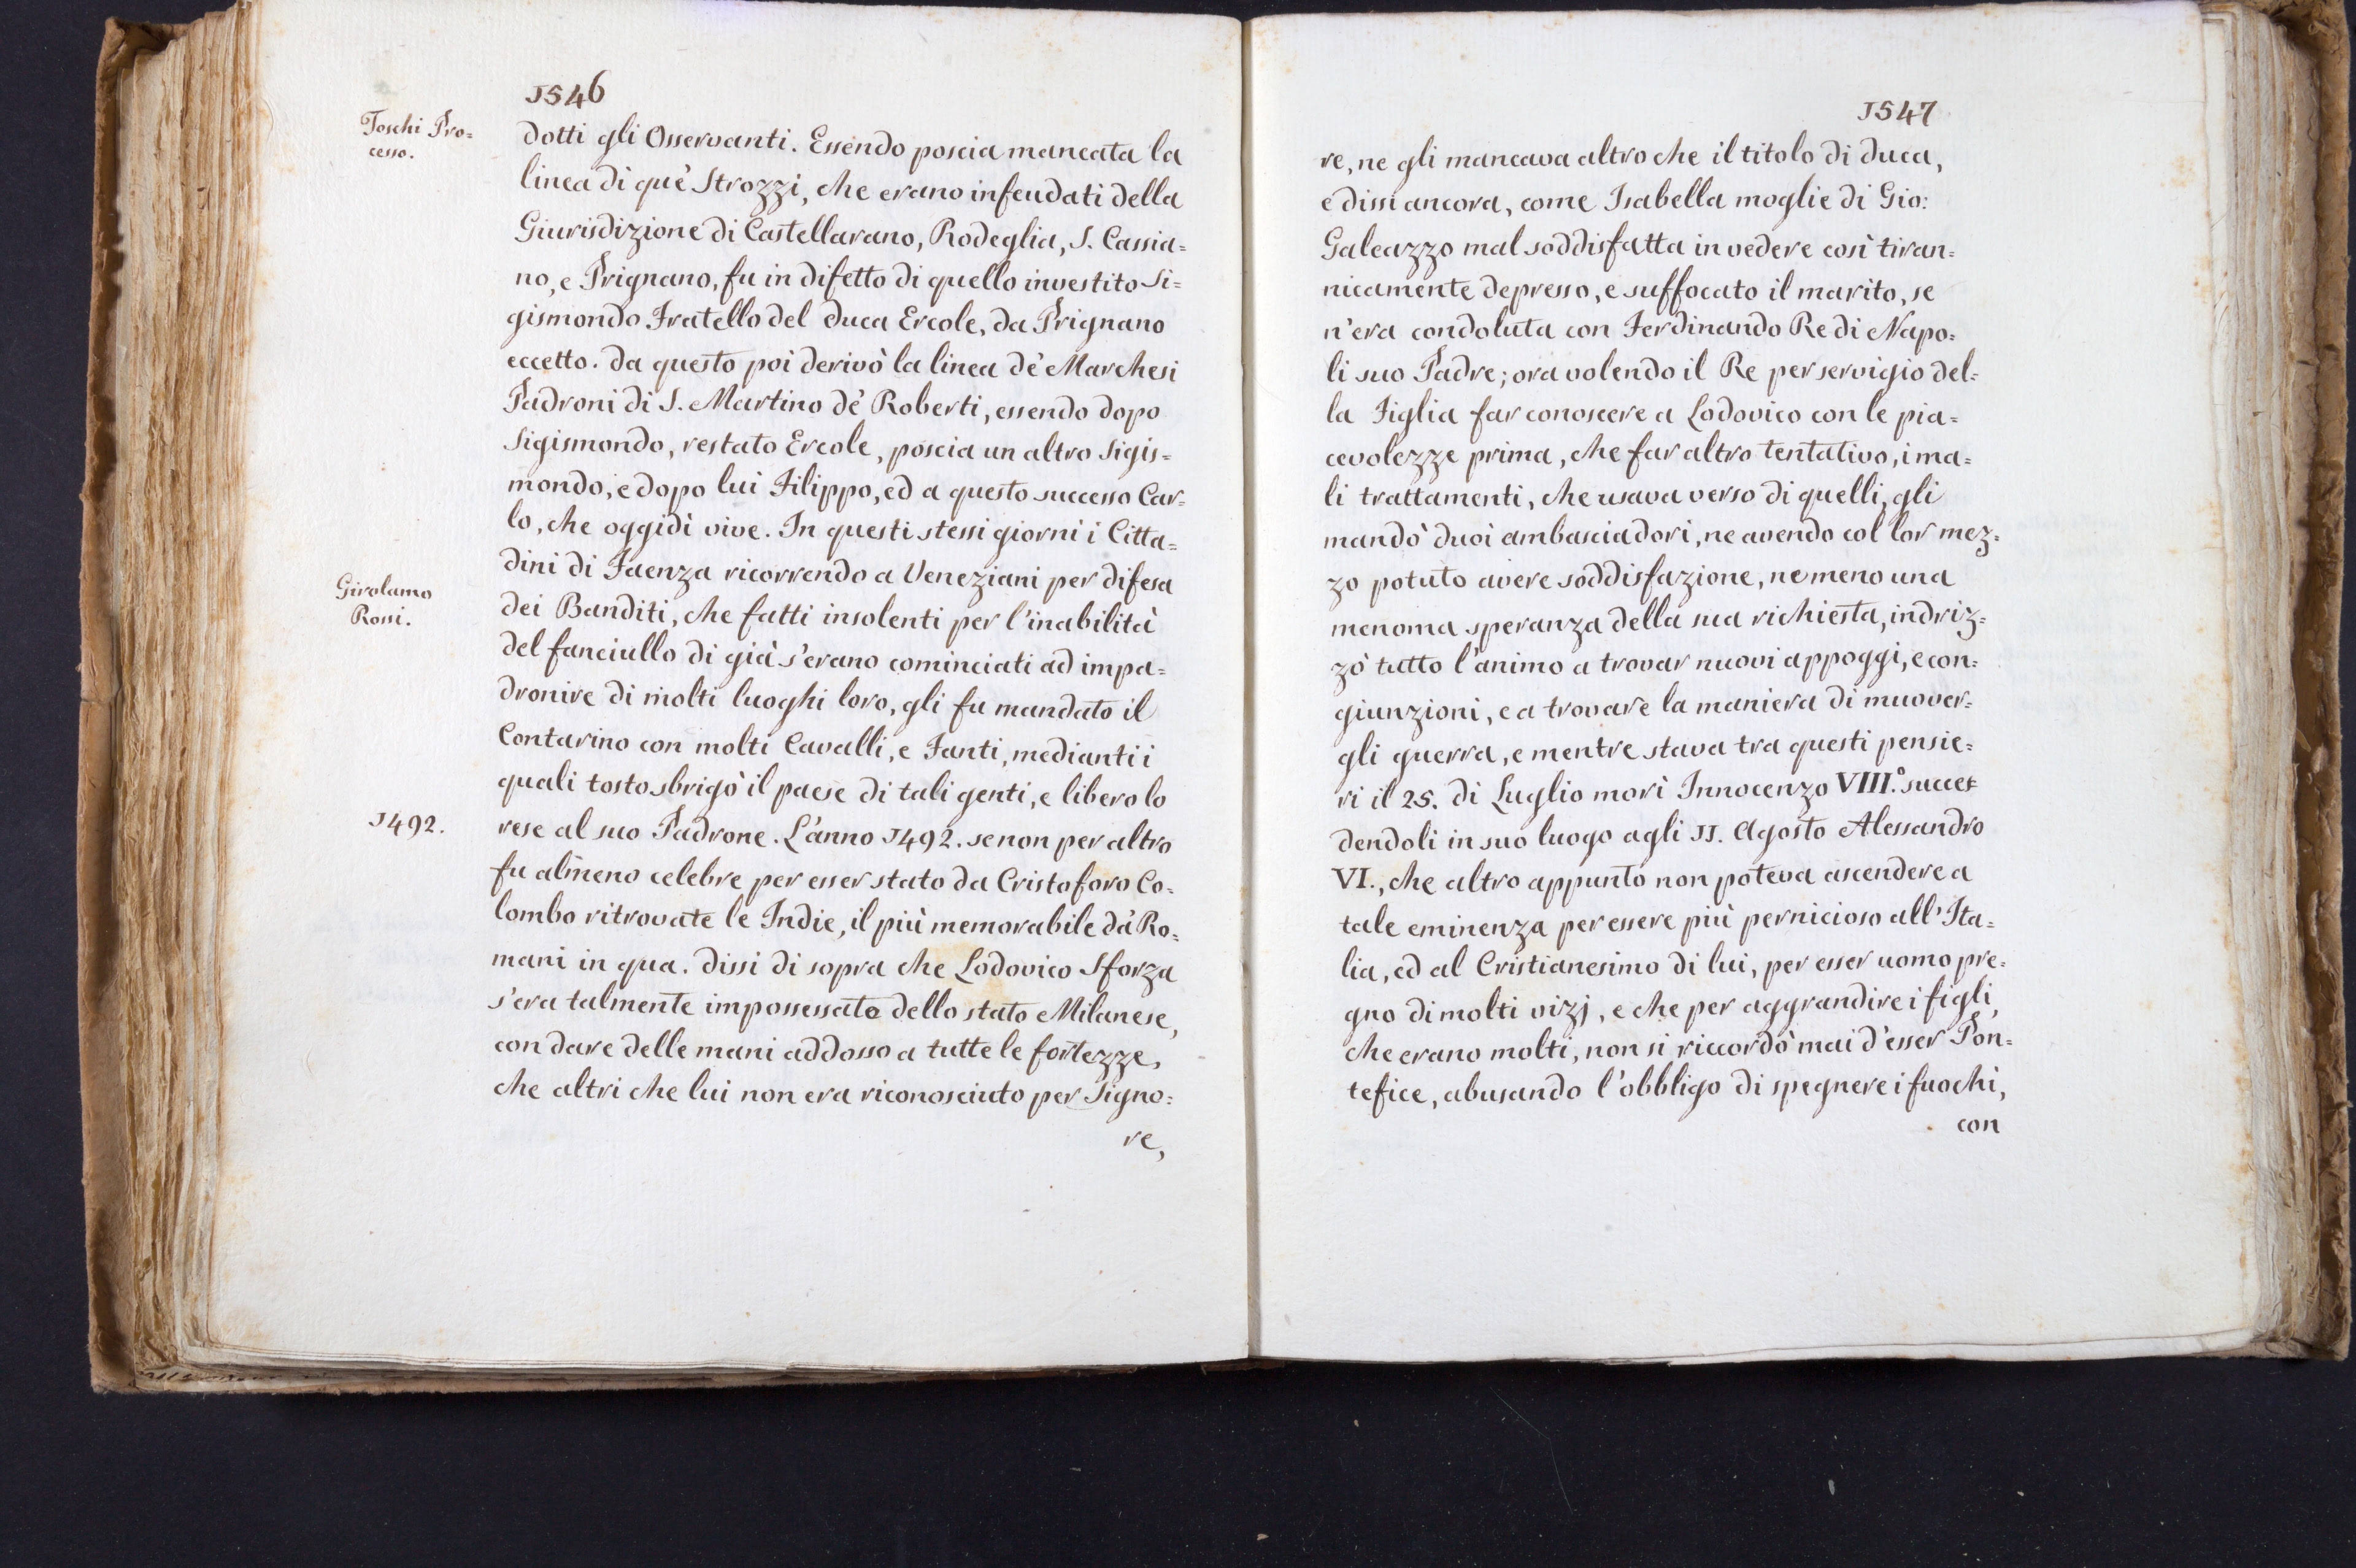 1546
Toschi Pro=
cesso.
dotti gli Osservanti. Essendo poscia mancata la
linea di què Strozzi, che erano infeudati della
Giurisdizione di Castellarano, Rodeglia, S. Cassia=
no, e Prignano, fu in difetto di quello investito Si=
gismondo Fratello del Duca Ercole, da Prignano
eccetto. Da questo poi derivò la linea dè Marchesi
Padroni di S. Martino dè Roberti, essendo dopo
Sigismondo, restato Ercole, poscia un altro Sigis=
mondo, e dopo lui Filippo, ed a questo successo Car=
lo, che oggidì vive. In questi stessi giorni i Citta=
dini di Faenza ricorrendo a Veneziani per difesa
Girolamo
Rossi.
dei Banditi, che fatti insolenti per l'inabilità
del fanciullo di già s'erano cominciati ad impa=
dronire di molti luoghi loro, gli fu mandato il
Contarino con molti Cavalli, e Fanti, medianti i
quali tosto sbrigò il paese di tali genti, e libero lo
1492.
rese al suo Padrone. L'anno 1492. se non per altro
fu almeno celebre per esser stato da Cristoforo Co=
lombo ritrovate le Indie, il più memorabile dà Ro=
mani in qua. Dissi di sopra che Lodovico Sforza
s'era talmente impossessato dello stato Milanese,
con dare delle mani addosso a tutte le fortezze,
che altri che lui non era riconosciuto per Signo=
re,
1547
re, ne gli mancava altro che il titolo di Duca,
e dissi ancora, come Isabella moglie di Gio:
Galeazzo mal soddisfatta in vedere così tiran=
nicamente depresso, e suffocato il marito, se
n'era condoluta con Ferdinando Re di Napo=
li suo Padre; ora volendo il Re per servigio del=
la Figlia far conoscere a Lodovico con le pia=
cevolezze prima, che far altro tentativo, i ma=
li trattamenti, che usava verso di quelli, gli
mandò duoi ambasciadori, ne avendo col lor mez=
zo potuto avere soddisfazione, ne meno una
menoma speranza della sua richiesta, indriz=
zò tutto l'animo a trovar nuovi appoggi, e con=
giunzioni, e a trovare la maniera di muover=
gli guerra, e mentre stava tra questi pensie=
ri il 25. di Luglio morì Innocenzo VIII.º succe=
dendoli in suo luogo agli 11. Agosto Alessandro
VI., che altro appunto non poteva ascendere a
tale eminenza per essere più pernicioso all'Ita=
lia, ed al Cristianesimo di lui, per esser uomo pre=
gno di molti vizj, e che per aggrandire i figli,
che erano molti, non si riccordò mai d'esser Pon=
tefice, abusando l'obbligo di spegnere i fuochi,
con